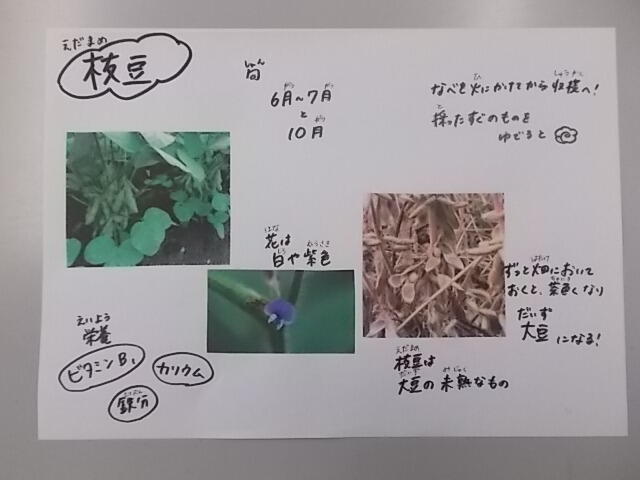 えだまめ
枝豆
しゅん
旬
6月～7月
と
10月
なべを火にかけてから収穫へ!
採ったすぐのものを
ゆでると
花は
白や紫色
ずっと畑において
おくと、茶色くなり
だいず
大豆になる!
えだまめ
枝豆は
大豆の未熟なもの
えいよう
栄養
ビタミンB1
カリウム
鉄分